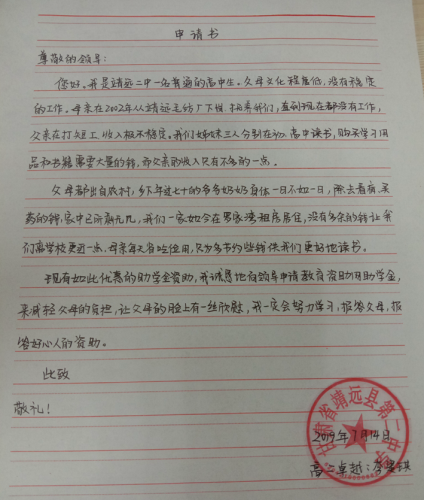 申请书
尊敬的领导:
您好。我是靖远二中一名普通的高中生。父母文化程度低,没有稳定
的工作。母亲在2002年从靖远毛纺厂下岗,抚养我们,直到现在都没有工作,
父亲在打短工,收入极不稳定。我们姊妹三人分别在初、高中读书,购买学习用
品和书籍需要大量的钱,而父亲的收入只有不多的一点。
父母都出自农村,乡下年过七十的爷爷奶奶身体一日不如一日,除去看病买
药的钱,家中已所剩无几,我们一家如今在罗家湾租房居住,没有多余的钱让我
们离学校更近一点。母亲每天省吃俭用,只为多节约些钱供我们更好地读书。
现有如此优惠的助学金资助,我诚恳地向领导申请教育资助助学金,
来减轻父母的负担,让父母的脸上有一丝欣慰,我一定会努力学习,报答父母,报
答好心人的资助。
此致
敬礼!
甘肃省靖远县第二中学
2019年7月14日
高二卓越:李